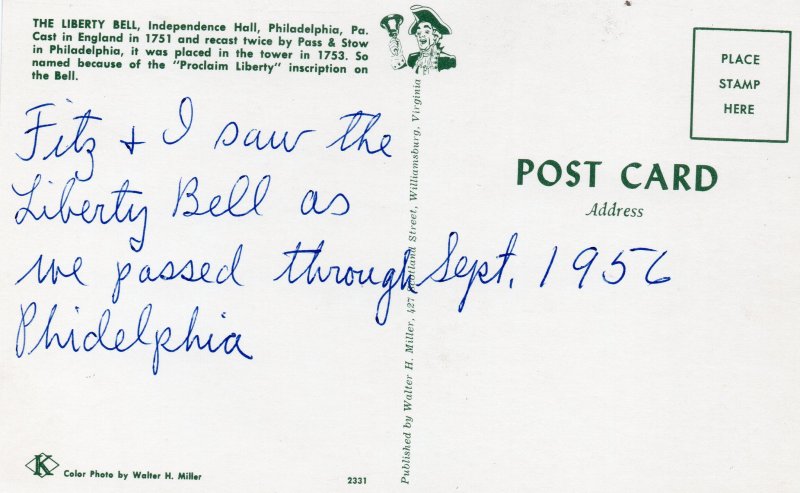 THE LIBERTY BELL, Independence Hall, Philadelphia, Pa.
Cast in England in 1751 and recast twice by Pass & Stow
in Philadelphia, it was placed in the tower in 1753. So
named because of the "Proclaim Liberty" inscription on
the Bell.
Fitz + I saw the
Liberty Bell as
we passed through Sept. 1956
Phidelphia
K
Color Photo by Walter H. Miller
2331
Published by Walter H. Miller, 427 Scotland Street, Williamsburg, Virginia
PLACE
STAMP
HERE
POST CARD
Address